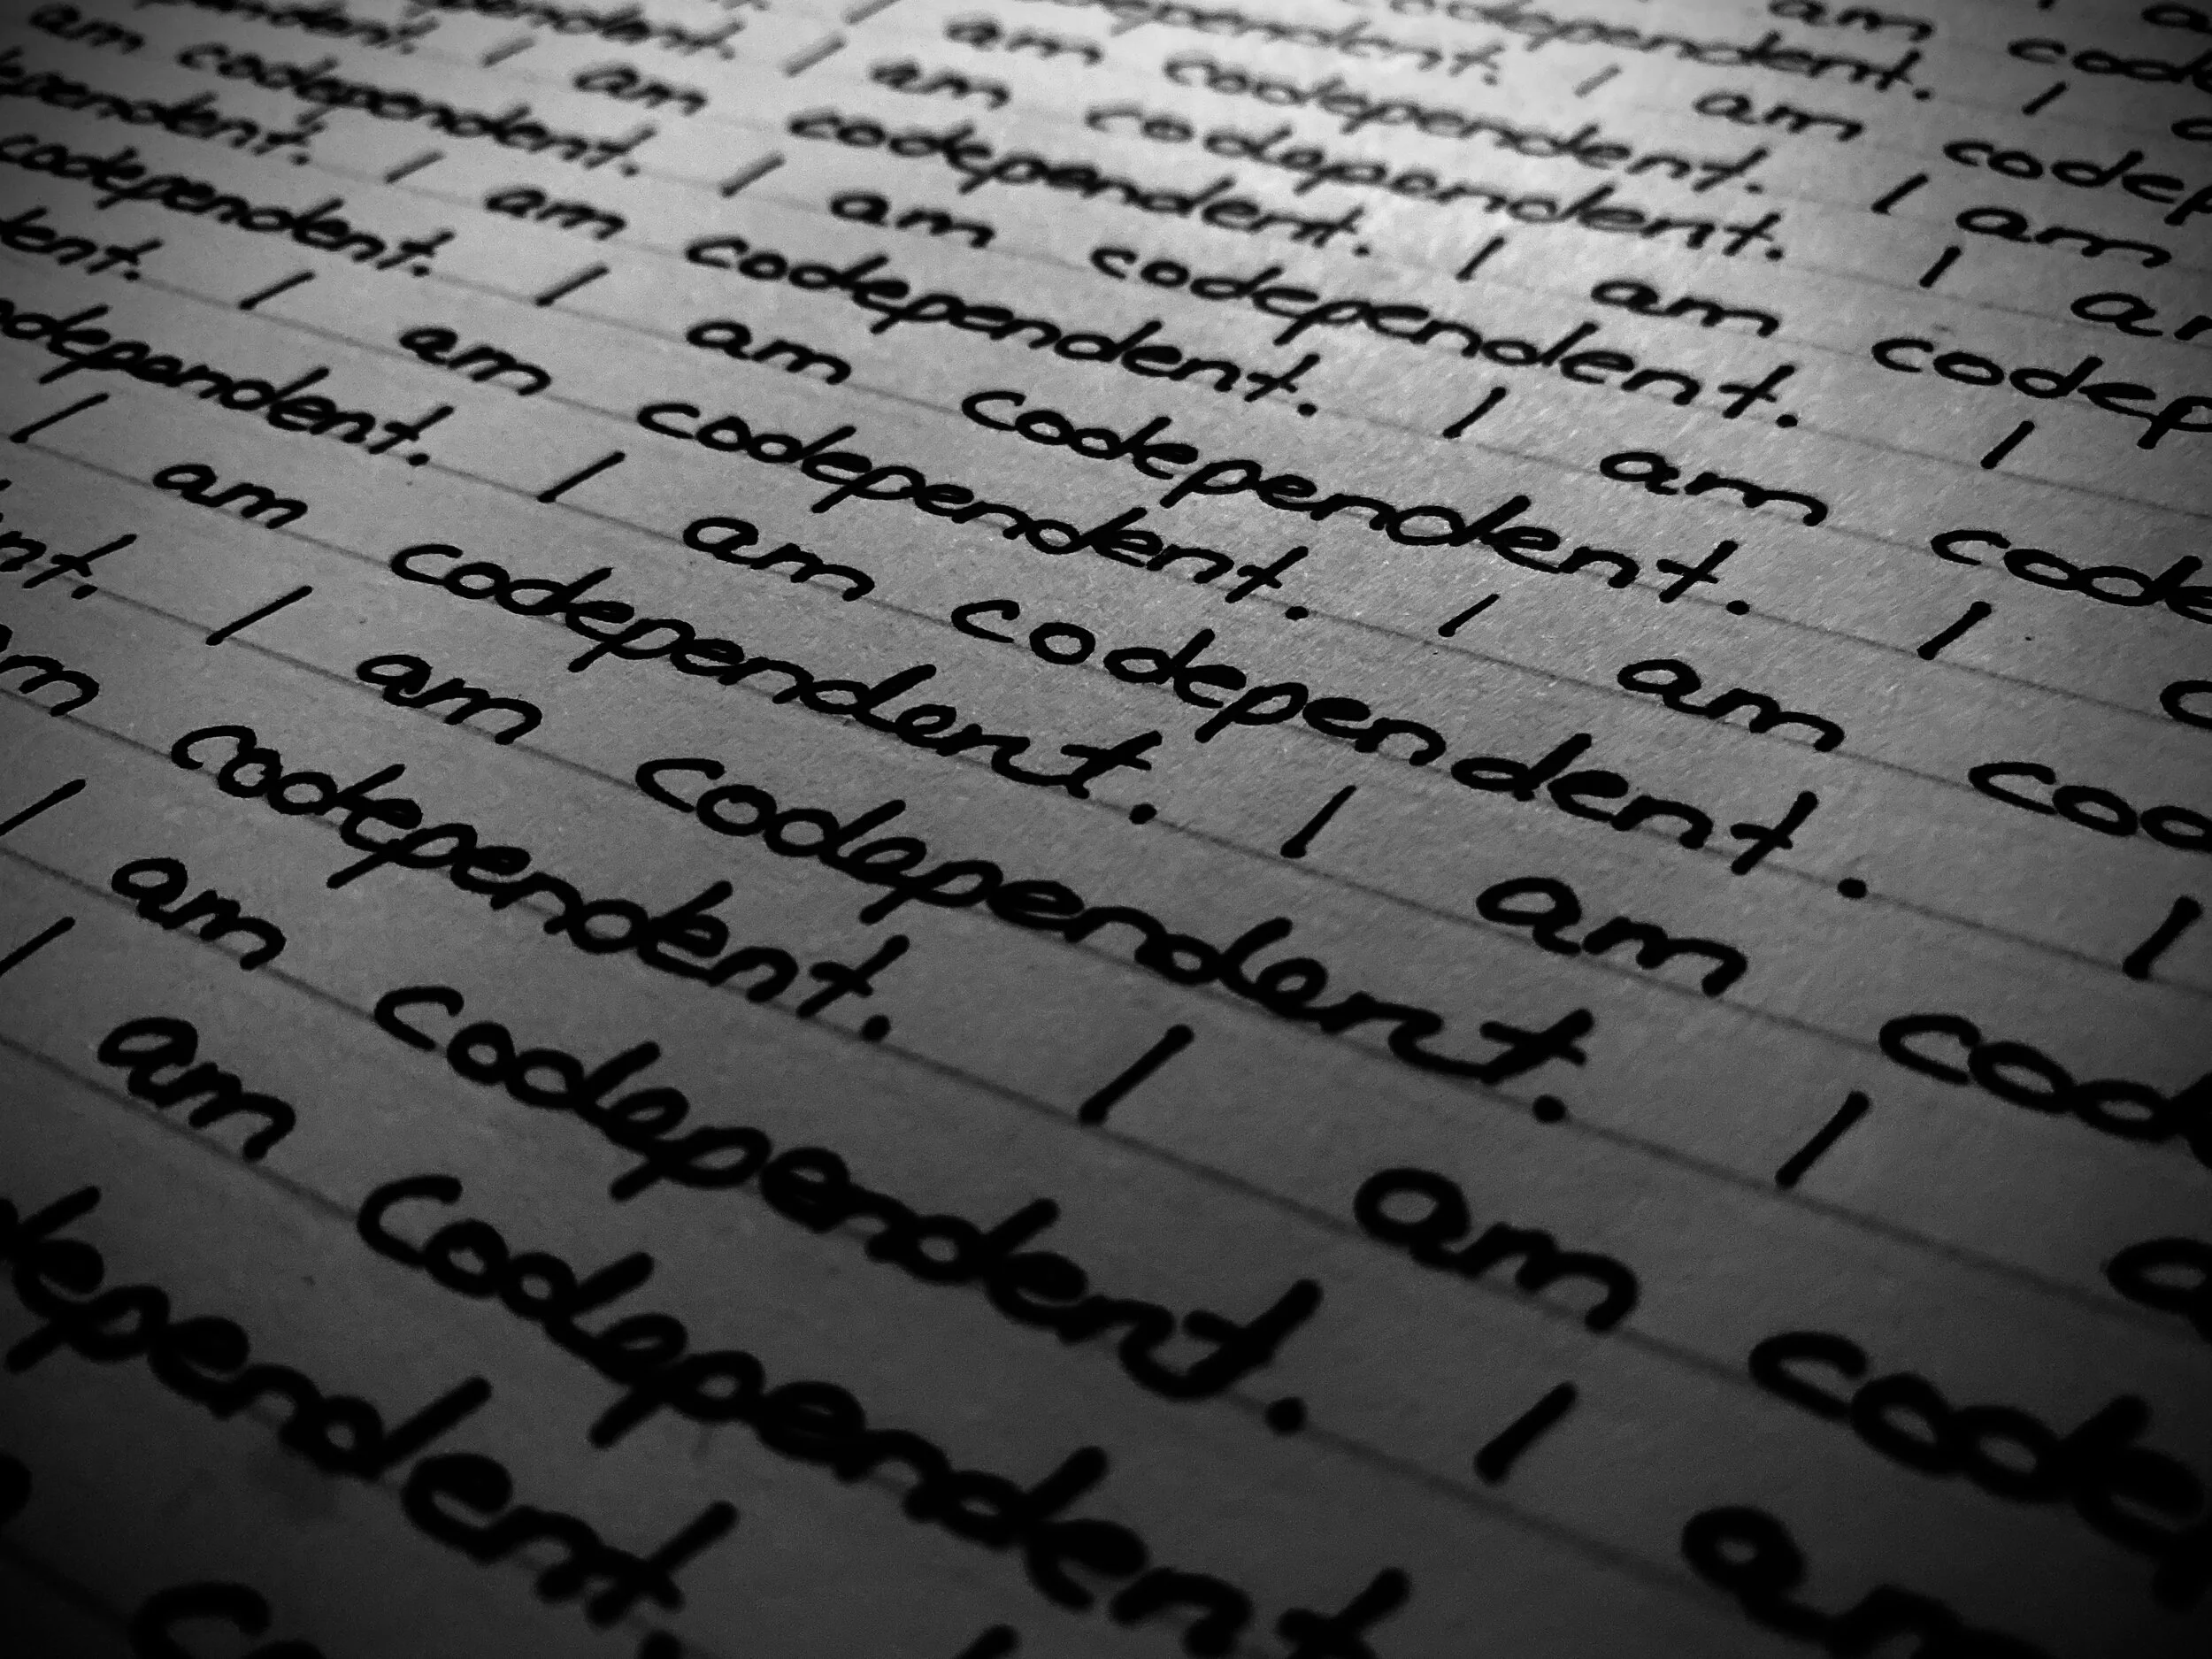 am code
codependent. I
pendent. I am codep
I am codependent. I am
endent. I am codependent. I am
pendent. I am codependent. I am codep
am codependent. I am codependent. I
ependent. I am codependent. I am code
codependent. I am codependent. I c
tent. I am codependent. I am cod
odependent. I am codependent. I
I am codependent. I am cod
nt. I am codependent. I a
am codependent. I am code
I am codependent. I am
I am codependent
dependent.
co